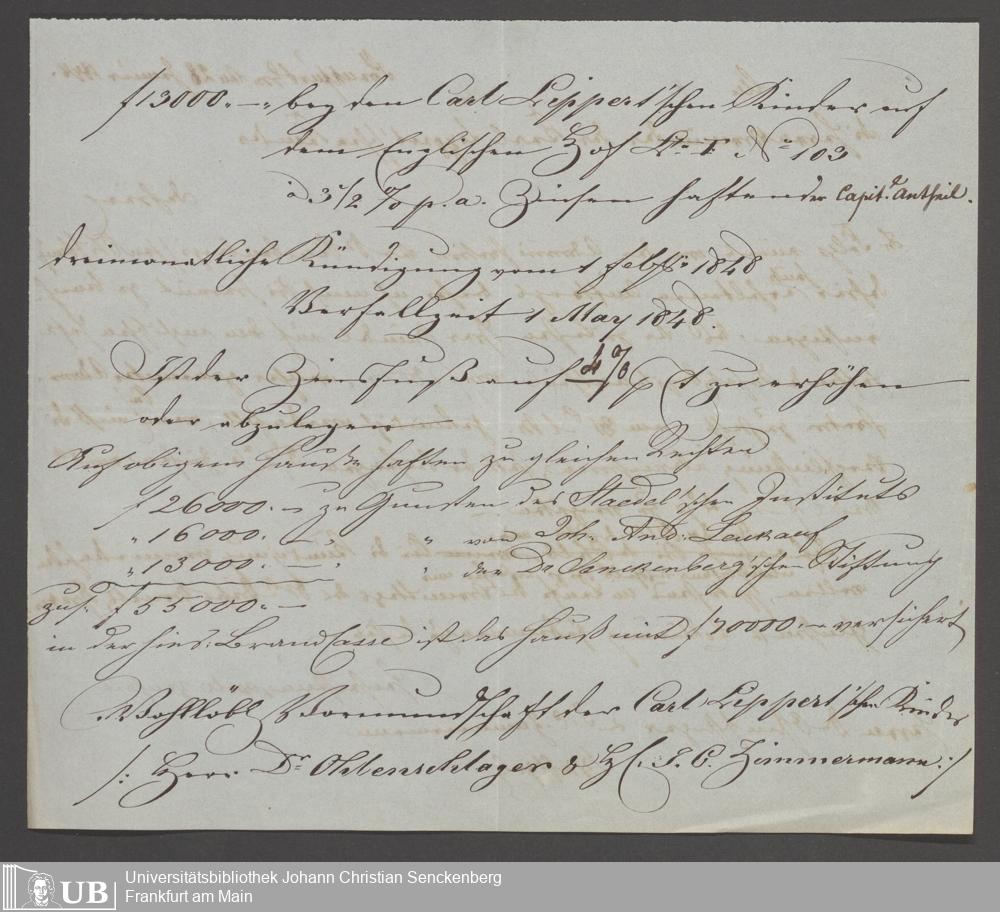 f 13000.— bey den Carl Lippert'schen Kinder auf
dem Englischen Hof Lit. F No 103
à 3 1/2 % p. a. Zinsen haftender Capit. Antheil.
dreimonatliche Kündigung vom 1 Febr. 1848
Verfallzeit 1 May 1848.
Ist der Zinsfuß auf 4 % p Ct zu erhöhen
oder abzulegen
Auf obigem Hauße haften zu gleichen Rechten
f 26000.— zu Gunsten des Staedel'schen Instituts
" 16000.— " " von Joh. And. Leukauf
" 13000.— " " der Dr Senckenberg'schen Stiftung
zus. f 55000.—
in der hies. Brand Casse ist das Hauß mit f 70000.— versichert
Wohllöbl Vormundschaft der Carl Lippert'schen Kinder
/: Herr Dr Ohlenschlager & H. J. C. Zimmermann :/
UB
Universitätsbibliothek Johann Christian Senckenberg
Frankfurt am Main